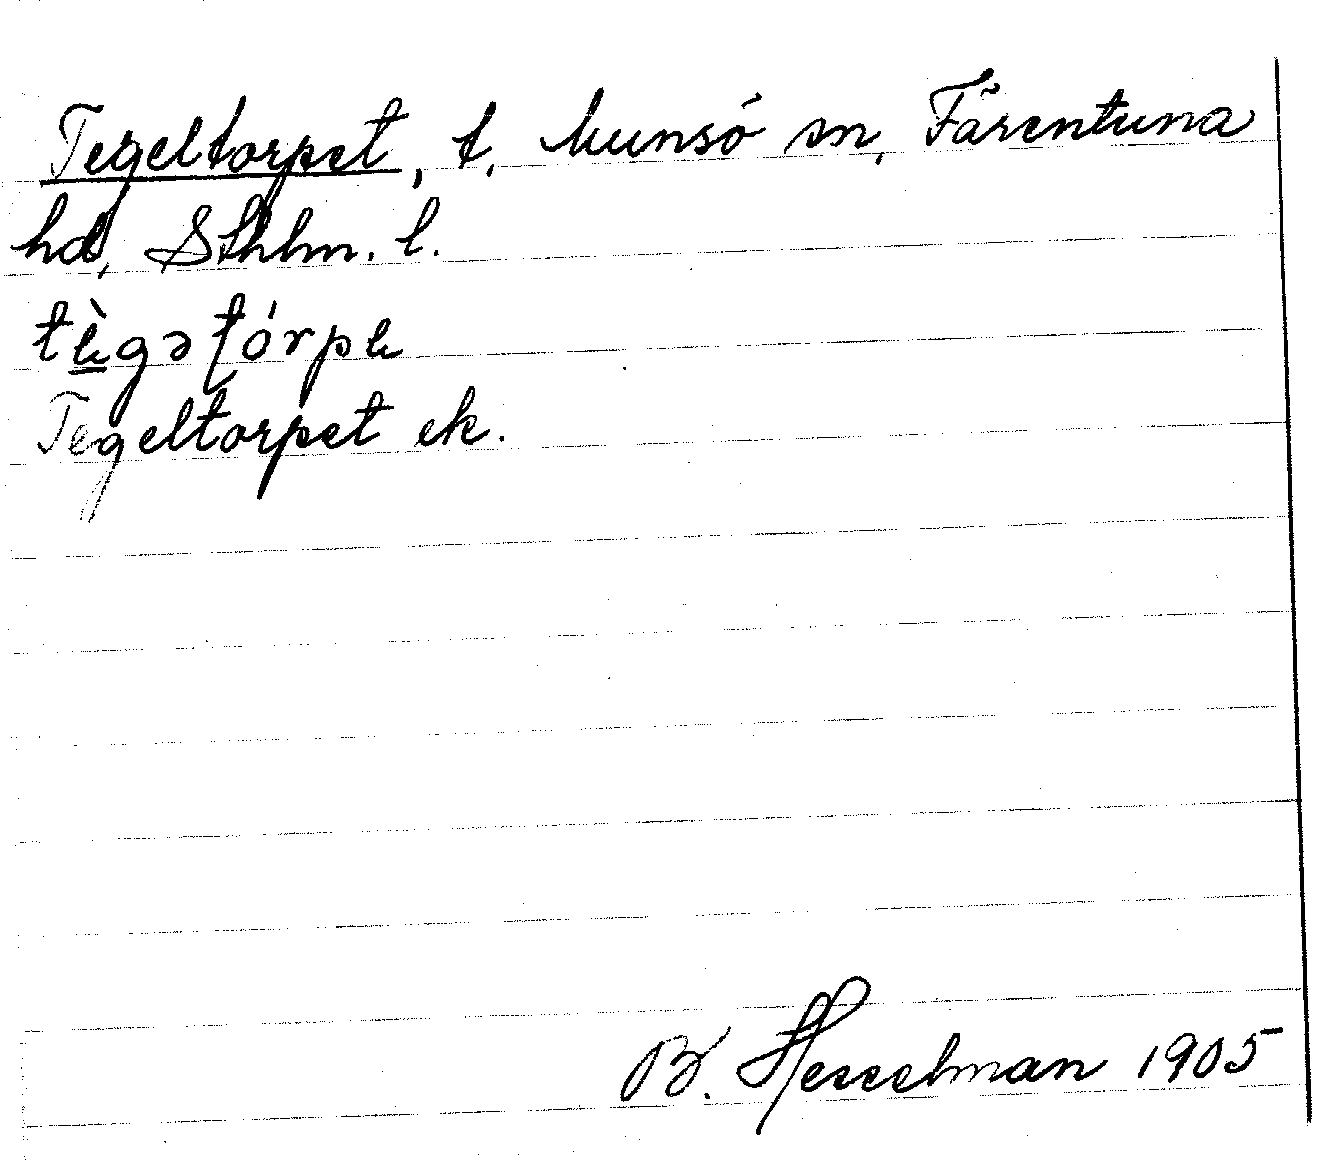 Tegeltorpet, t, Munsö sn, Färentuna
hd, Sthlm. l.
tè̠gəfórpe
Tegeltorpet ek.
B. Hesselman 1905